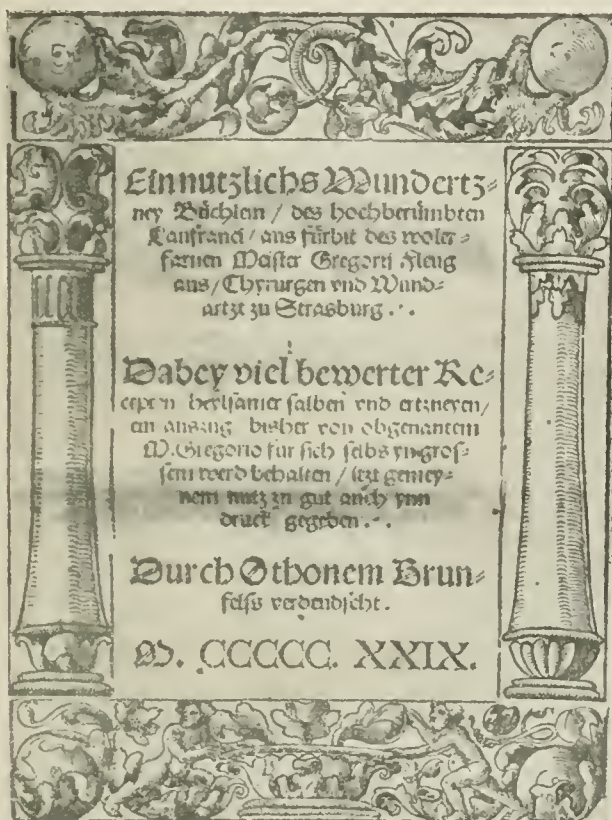 Ein nutzlichs Wundertz⸗
ney Büchlein / des hochberümbten
Lanfranci / aus fürbit des woler⸗
farnen Meister Gregorij Fleug
aus / Chyrurgen vnd Wund⸗
artzt zu Strasburg . · .
Dabey viel bewerter Re⸗
cepten heylsamer salben vnd ertzneyen /
ein auszug bisher von obgenantem
M. Gregorio für sich selbs yn gros⸗
sem werd behalten / itzt gemey⸗
nem nutz zu gut auch ynn
druck gegeben . · .
Durch Othonem Brun⸗
felss verdeudscht .
M. CCCCC. XXIX.